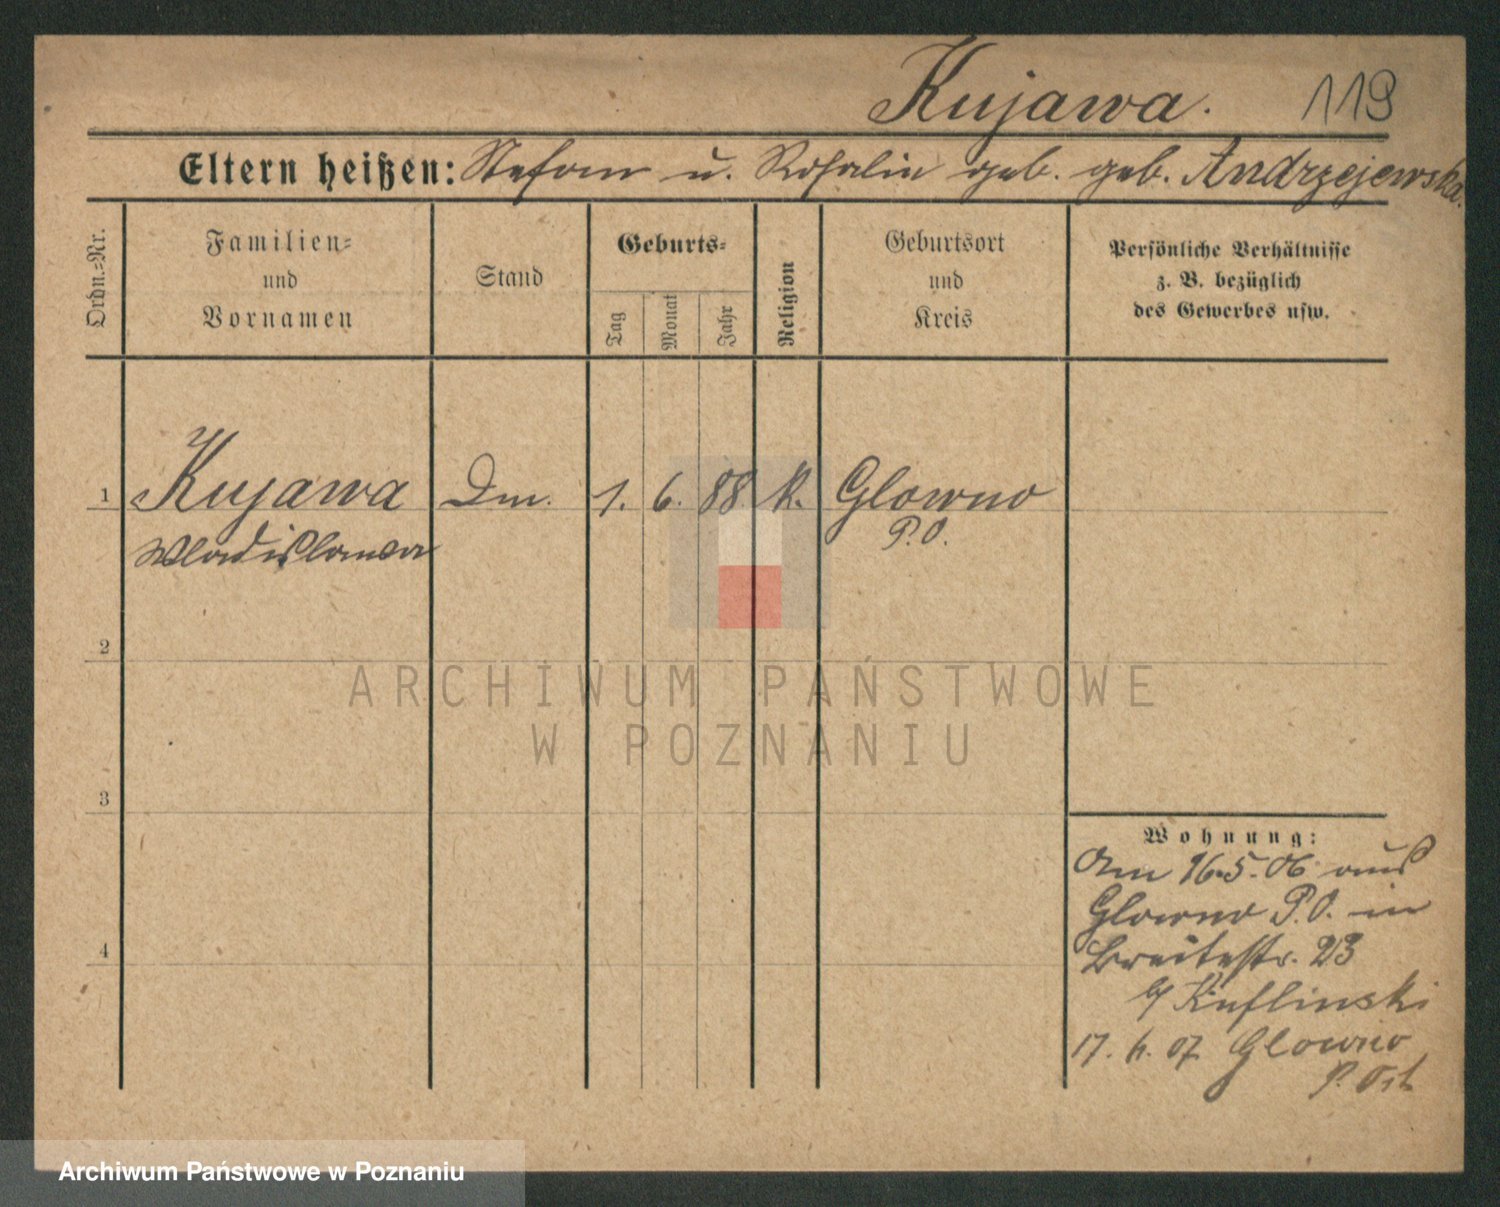 Kujawa. 119
Eltern heißen: Stefan u. Rosalie geb. geb. Andrzejewska.
Ordn.=Nr.
Familien=
und
Vornamen
Stand
Geburts=
Tag
Monat
Jahr
Religion
Geburtsort
und
Kreis
Persönliche Verhältnisse
z. B. bezüglich
des Gewerbes usw.
1 Kujawa Dm. 1. 6. 88 k. Glowno
Wladislawa P.O.
2
3
4
Wohnung:
Am 16.5.06 aus
Glowno P.O. in
Breitestr. 23
b/ Kuflinski
17. 6. 07 Glowno
P. Ost
ARCHIWUM PAŃSTWOWE
W POZNANIU
Archiwum Państwowe w Poznaniu